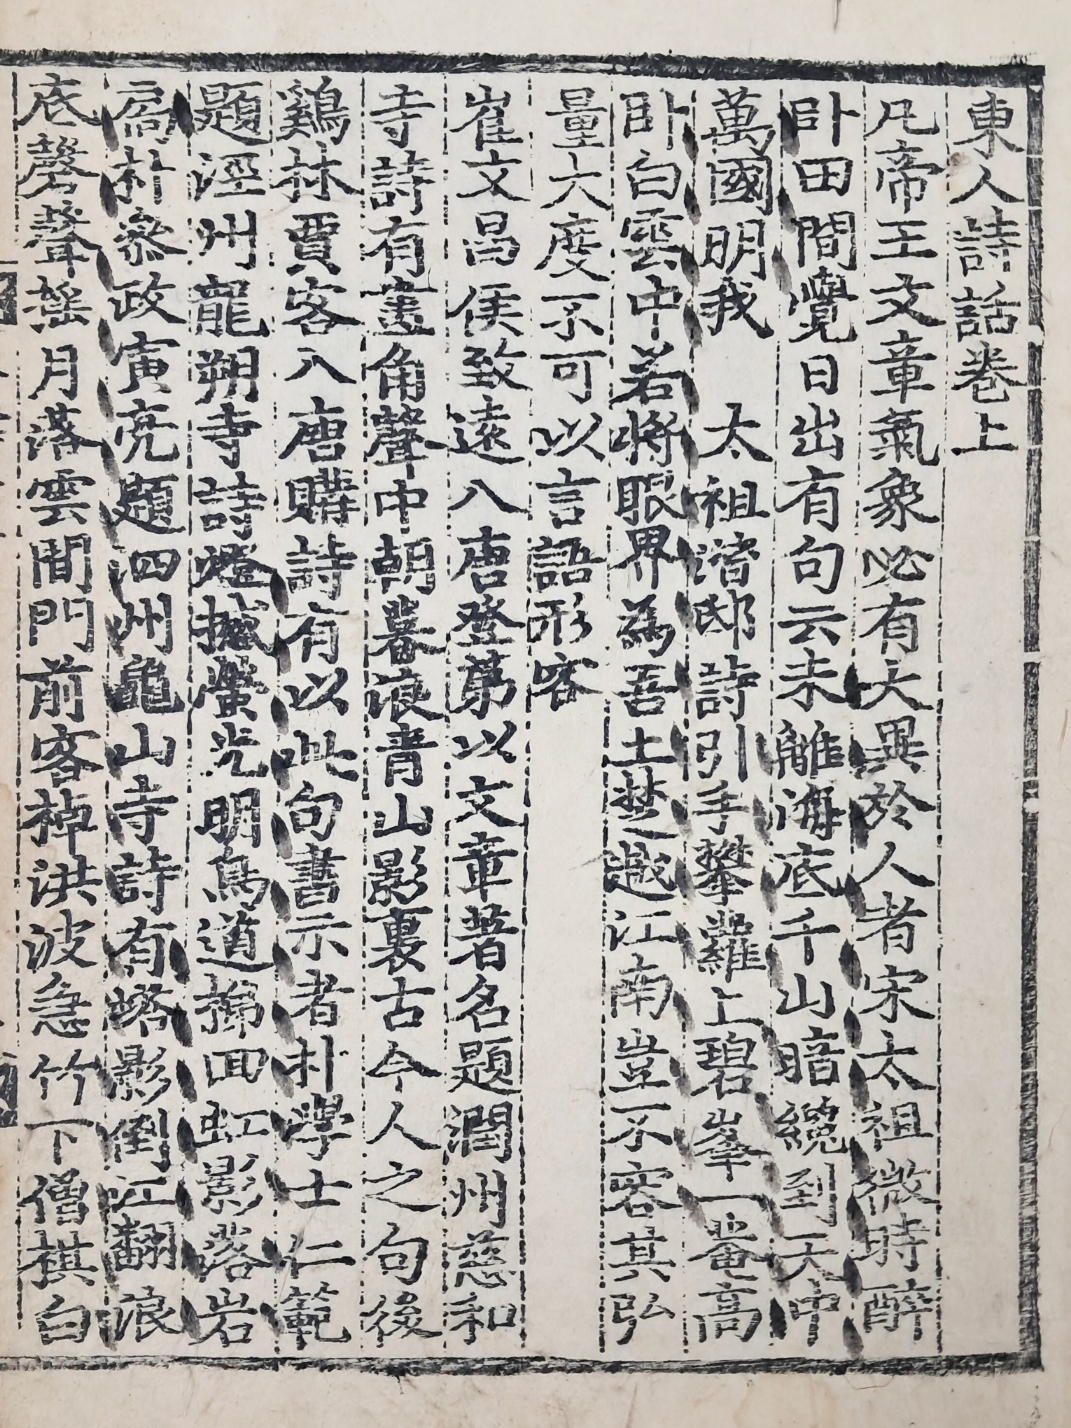 東人詩話卷上
凡帝王文章氣象必有大異於人者宋太祖微時醉
卧田間覺日出有句云未離海底千山暗纔到天中
萬國明我　太祖潜邸詩引手攀蘿上碧峯一菴高
卧白雲中若將眼界爲吾土楚越江南豈不容其弘
量大度不可以言語形容
崔文昌侯致遠入唐登第以文章著名題潤州慈和
寺詩有畫角聲中朝暮浪青山影裏古今人之句後
鷄林賈客入唐購詩有以此句書示者朴學士仁範
題涇州龍朔寺詩燈撼螢光明鳥道梯回虹影落岩
扃朴參政寅亮題泗州龜山寺詩有塔影倒江翻浪
底磬聲搖月落雲間門前客棹洪波急竹下僧棋白